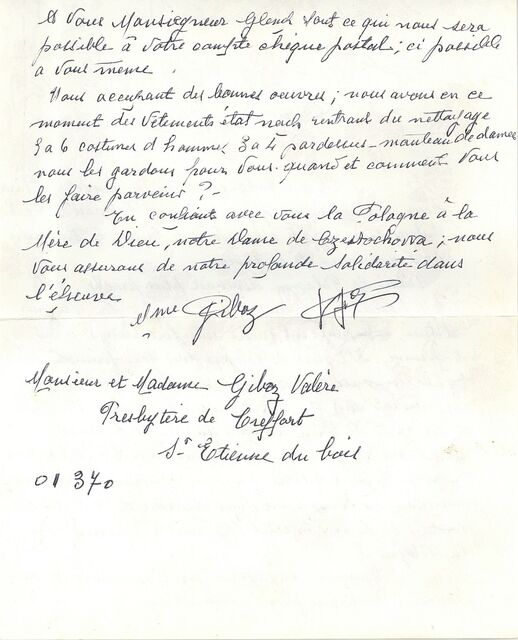 à Vous Monseigneur Glemb tout ce qui nous sera
possible à votre compte chèque postal ; ci possible
a vous même.
Vous occupant des bonnes oeuvres ; nous avons en ce
moment des vêtements état neufs rentrant du nettoyage
5 à 6 costumes d hommes 3 à 4 pardessus - manteau de dames
nous les gardons pour Vous. quand et comment Vous
les faire parvenir ? -
En confiant avec vous la Pologne à la
Mère de Dieu, notre Dame de Czestochowa ; nous
vous assurons de notre profonde solidarité dans
l'épreuve
Mme Giboz
Monsieur et Madame Giboz Valère
Presbytère de Treffort
St Etienne du bois
01 370